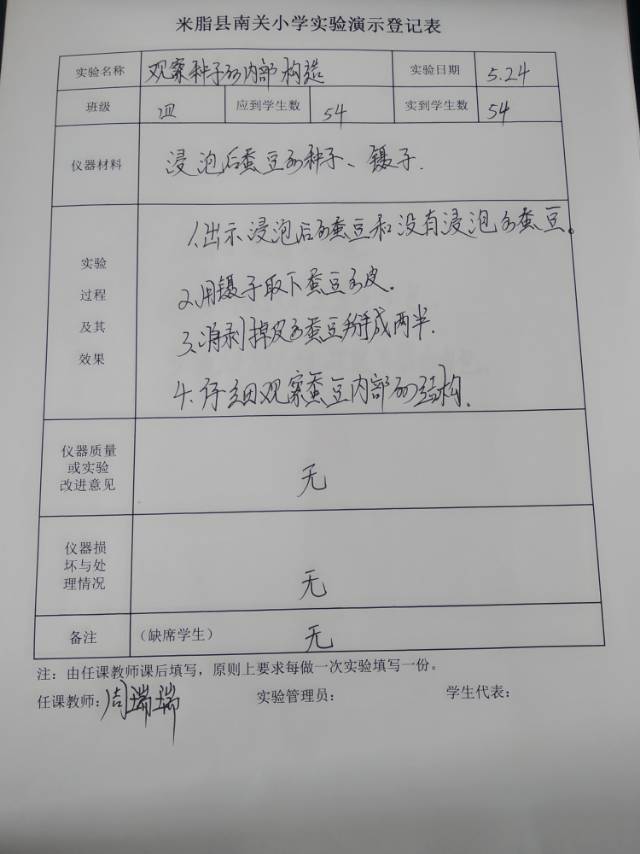 米脂县南关小学实验演示登记表
实验名称 观察种子的内部构造 实验日期 5.24
班级 四 应到学生数 54 实到学生数 54
仪器材料 浸泡后蚕豆的种子、镊子.
实验
过程
及其
效果
1.出示浸泡后的蚕豆和没有浸泡的蚕豆。
2.用镊子取下蚕豆的皮。
3.将剥掉皮的蚕豆掰成两半.
4.仔细观察蚕豆内部的结构.
仪器质量
或实验
改进意见
无
仪器损
坏与处
理情况
无
备注 (缺席学生) 无
注：由任课教师课后填写，原则上要求每做一次实验填写一份。
任课教师：周瑞瑞 实验管理员： 学生代表：